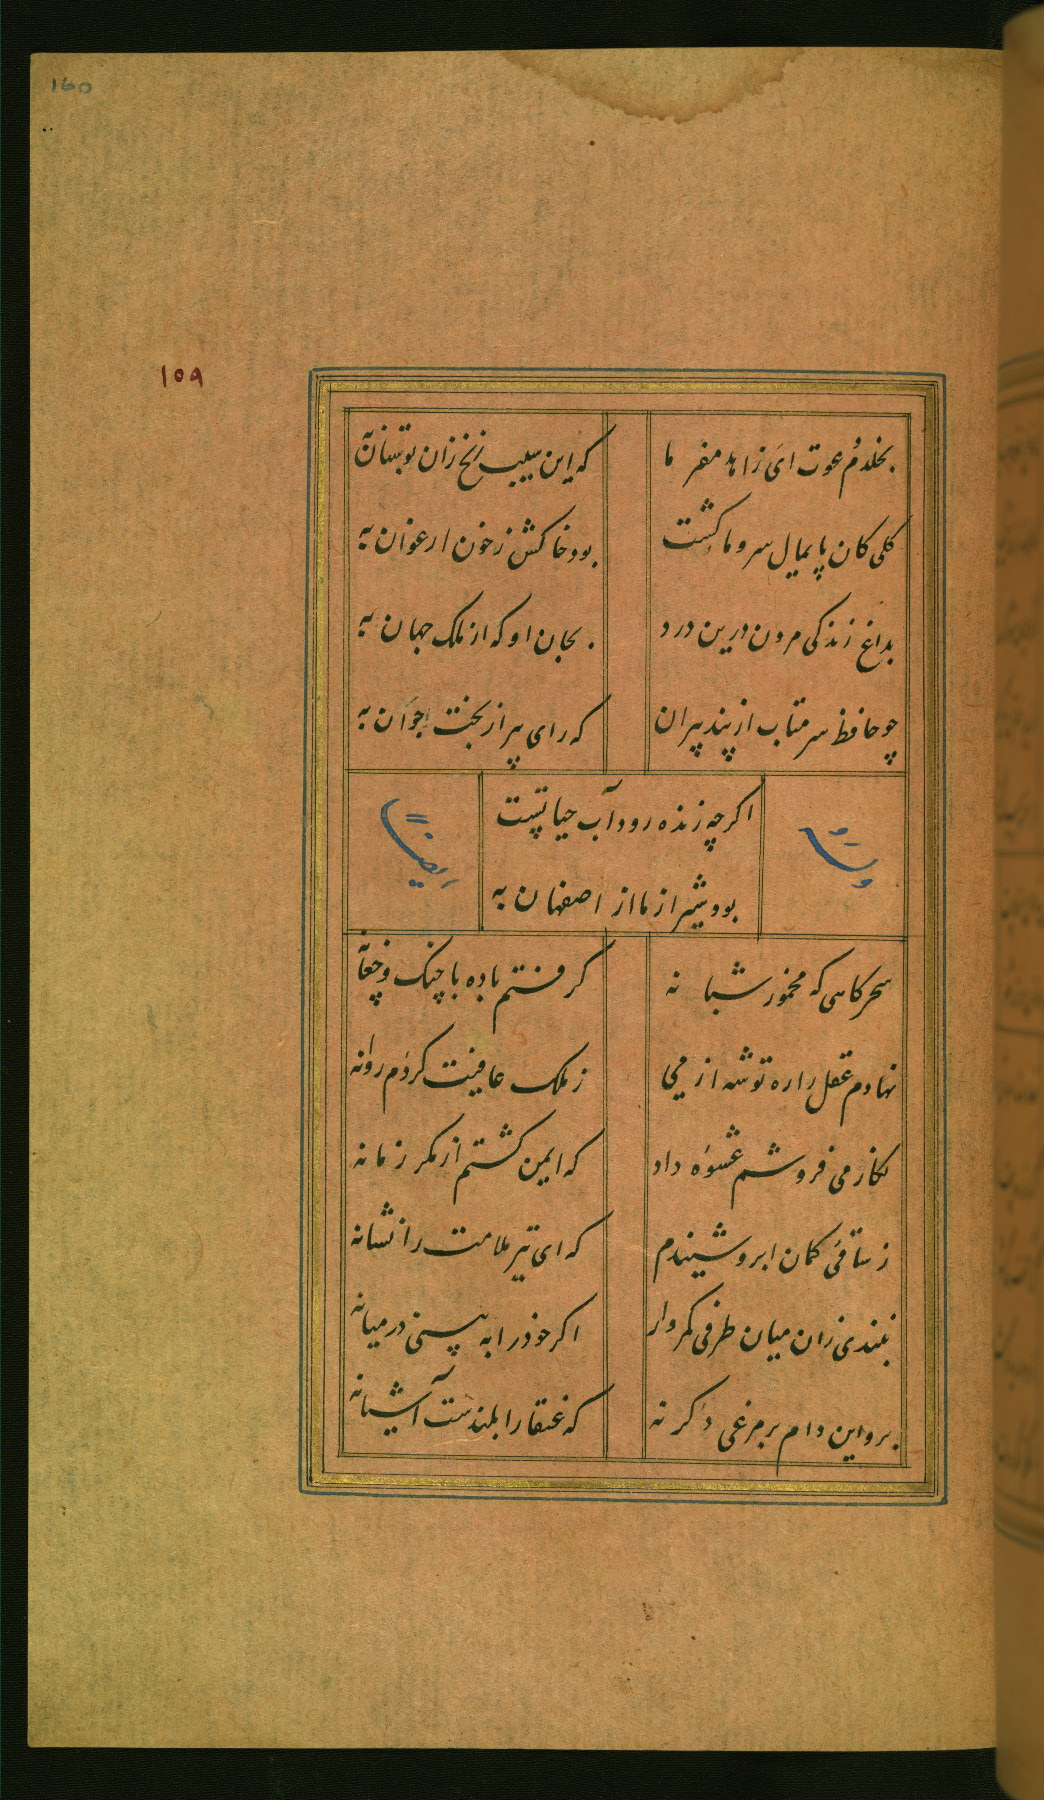 160
۱۵۹
بخلدم دعوت ای زاهد مفرما
که این سیب زنخ زان بوستان به
گلی کان پایمال سرو ما گشت
بود خاکش ز خون ارغوان به
بداغ زندگی مردن درین درد
بجان او که از ملک جهان به
چو حافظ سر متاب از پند پیران
که رای پیر از بخت جوان به
اگرچه زنده رود آب حیاتست
بود شیراز ما از اصفهان به
وله
ایضاً
سحرگاهی که مخمور شبانه
گرفتم باده با چنگ و چغانه
نهادم عقل را ره توشه از می
ز ملک عافیت کردم روانه
نگار می فروشم عشوه داد
که ایمن گشتم از مکر زمانه
ز ساقی کمان ابرو شنیدم
که ای تیر ملامت را نشانه
نبندی زان میان طرفی کمروار
اگر خود را به بینی در میانه
برو این دام بر مرغی دگر نه
که عنقا را بلندست آشیانه